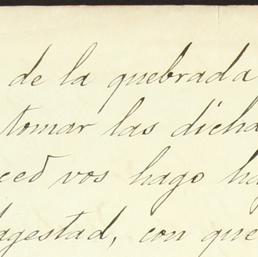 de la quebrada
tomar las dicha
ced vos hago ha
agestad, con que